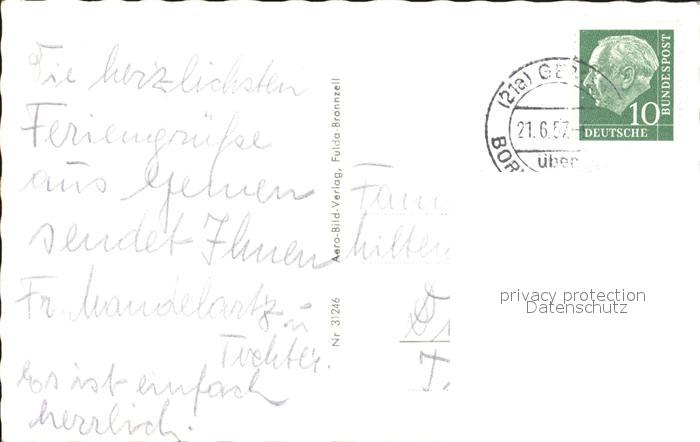 Die herzlichsten
Feriengrüße
aus Gemen
sendet Ihnen
Fr. Mandelartz u.
Tochter.
Es ist einfach
herrlich.
Aero-Bild-Verlag, Fulda-Bronnzell
Nr 31246
Fam
(21a) GE
21.6.57
BOR
über
BUNDESPOST
10
DEUTSCHE
privacy protection
Datenschutz